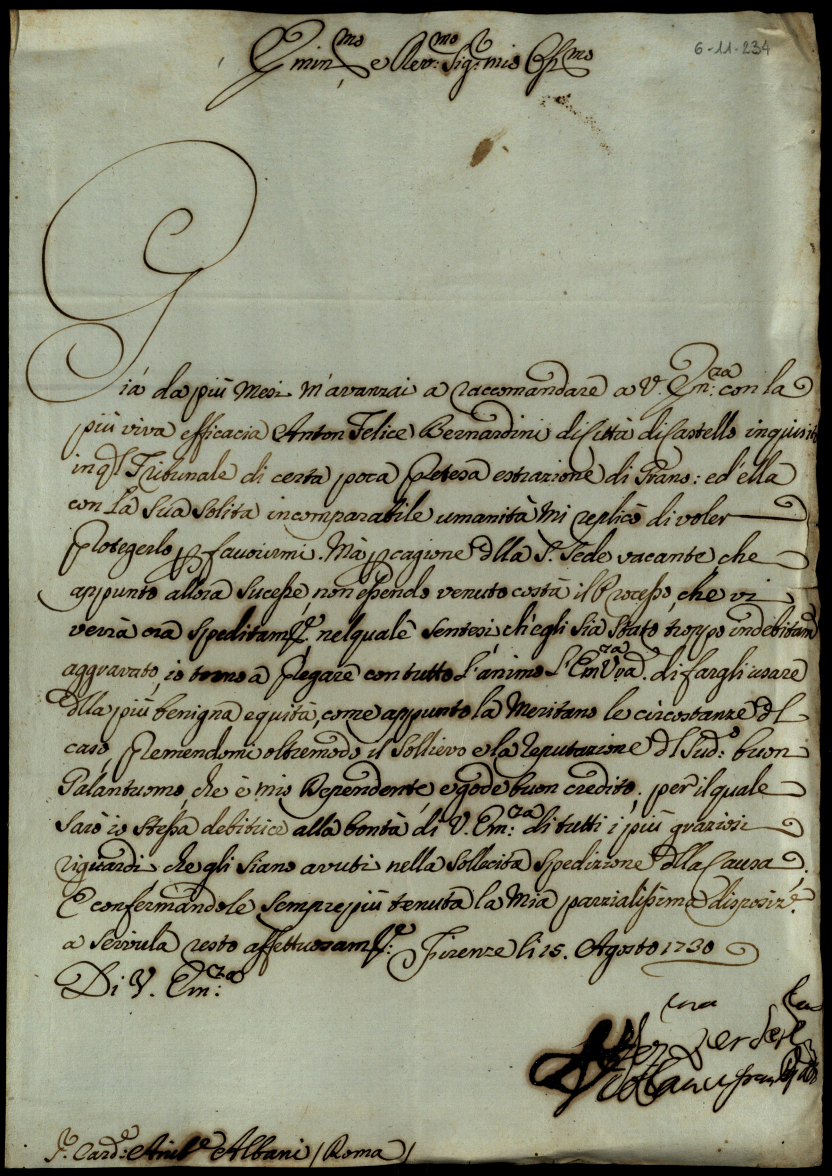 6-11-234
Emin.mo e Rev.mo Sig.r mio Oss.mo
Già da più Mesi m'avanzai a raccomandare a V. Em.za con la
più viva efficacia Anton Felice Bernardini di Città di Castello inquisito
in q.l Tribunale di certa poca pretesa estrazione di Grano: ed ella
con la Sua solita incomparabile umanità mi replicò di voler
protegerlo p favorirmi. Mà p cagione dlla S. Sede vacante, che
appunto allora sucesse, non essendo venuto costà il Processo, che vi
verrà ora speditam.te nel quale sentesi ch'egli sia stato troppo indebitam.
aggravato, io torno a pregare con tutto l'animo l'Em.za V.ra di fargli usare
dlla più benigna equità, come appunto la meritano le circostanze dl
caso, premendomi oltremodo il sollievo e la reputazione dl Sud.o buon
Galantuomo, che è mio Dependente e gode buon credito; per il quale
sarò io stessa debitrice alla bontà di V. Em.za di tutti i più graziosi
riguardi che gli siano avuti nella sollecita spedizione dlla Causa.
E confermandole sempre più tenuta la mia parzialissima disposiz.e
a servirla resto affettuosam.te Firenze li 15. Agosto 1730
Di V. Em.za
S.r Card.e Anib.e Albani (Roma)